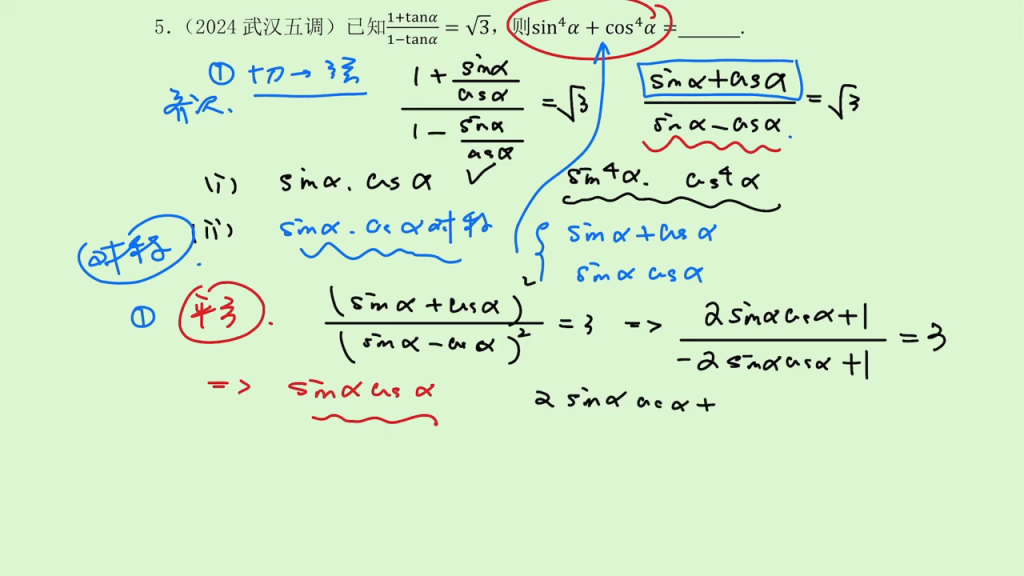 5.（2024 武汉五调）已知(1+tanα)/(1−tanα) = √3，则sin⁴α + cos⁴α = ______.
① 切 → 弦
(1 + sinα/cosα)/(1 − sinα/cosα) = √3
(sinα + cosα)/(sinα − cosα) = √3
(i) sinα. cosα ✓
sin⁴α. cos⁴α
对称.
(ii) sinα. cosα 对称
{ sinα + cosα
sinα cosα
① 平方.
(sinα + cosα)²/(sinα − cosα)² = 3 => (2sinαcosα + 1)/(−2sinαcosα + 1) = 3
=> sinα cosα
2 sinα cosα +